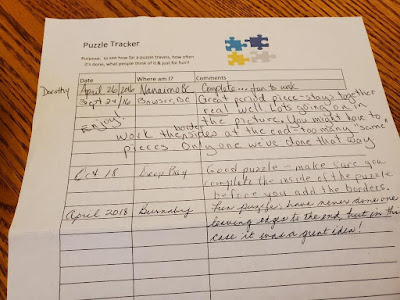 Puzzle Tracker
Purpose: to see how far a puzzle travels, how often
it's done, what people think of it & just for fun!
Date Where am I? Comments
Dorothy April 26/2016 Nanaimo BC Complete... fun to work
Sept 24/16 Bowser, BC Great period piece - stays together
Enjoy! real well. Lots going on in
the picture. You might have to
border
work the sides at the end - too many "same"
pieces. Only one we've done that way
Oct 18 Deep Bay Good puzzle - make sure you
complete the inside of the puzzle
before you add the borders.
April 2018 Burnaby Fun puzzle, have never done one
leaving edges to the end, but in this
case it was a great idea!